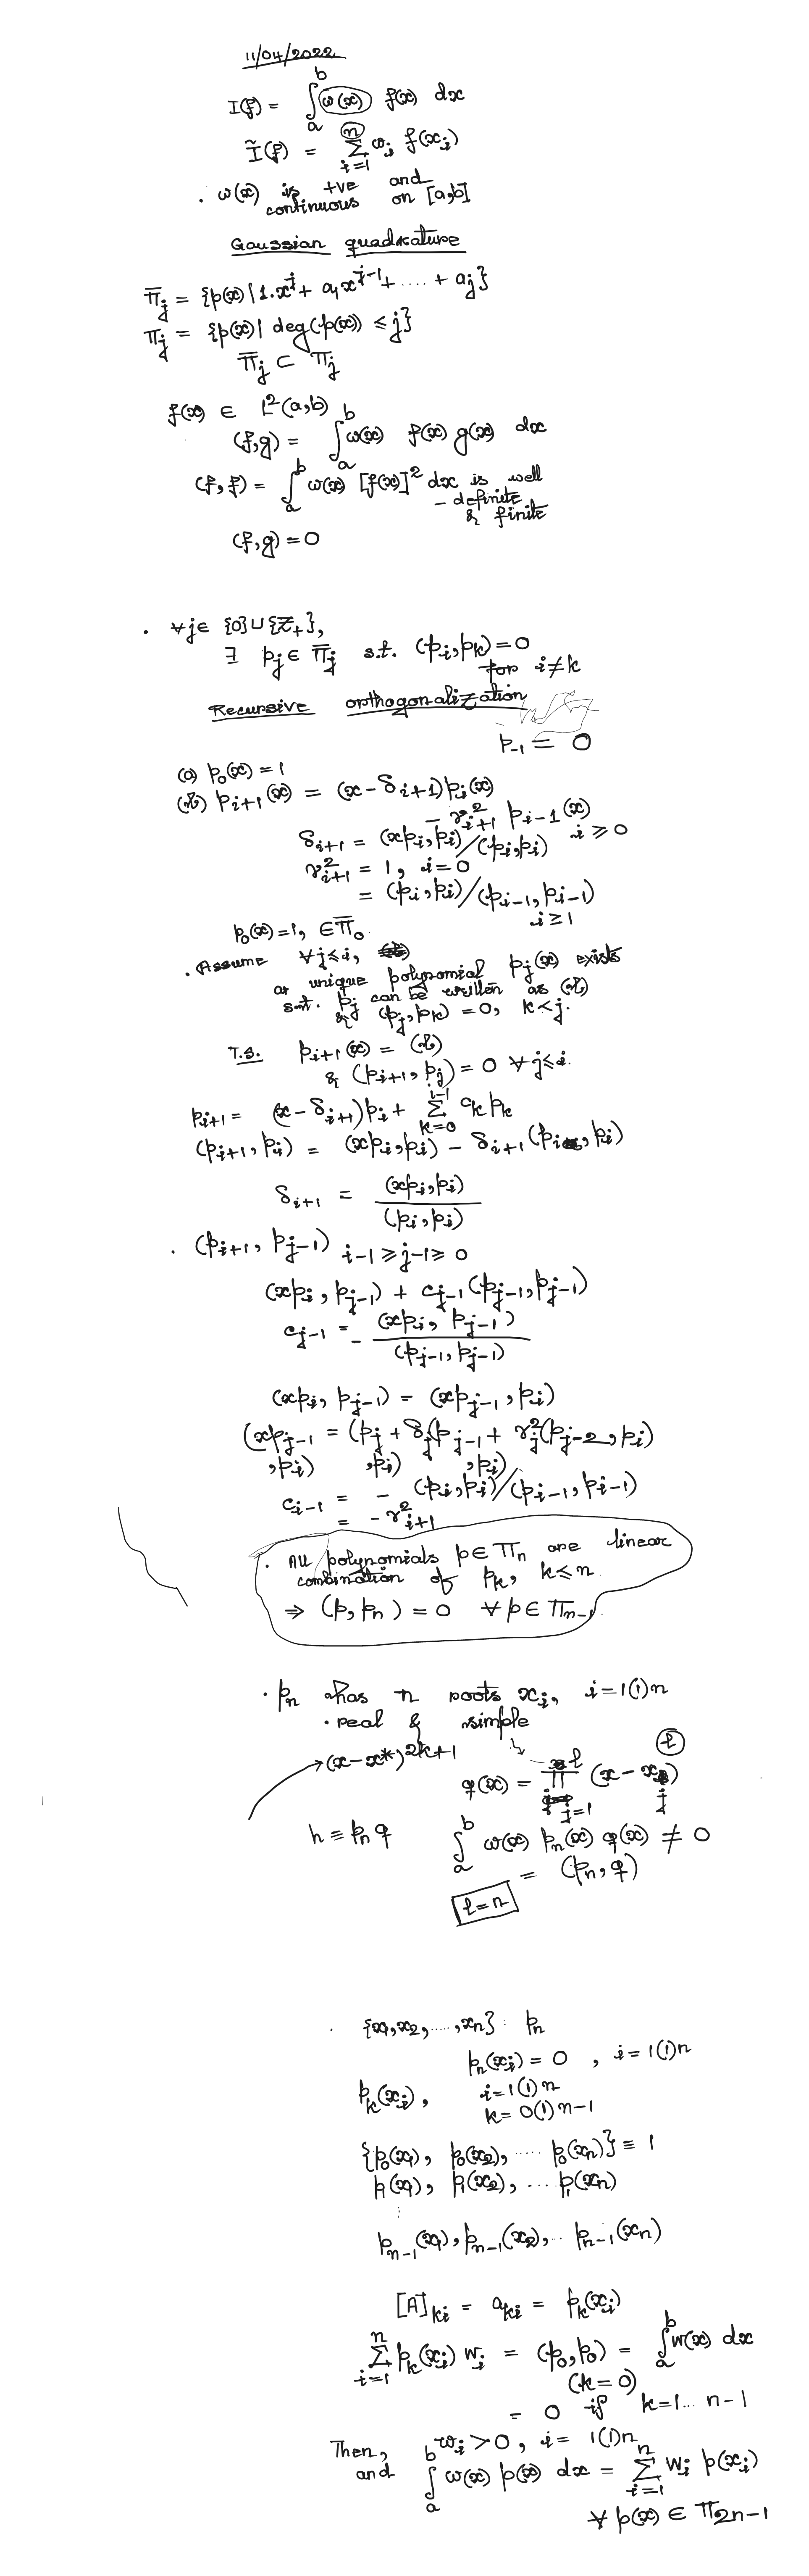 11/04/2022
I(f) = ∫_a^b ω(x) f(x) dx
Ĩ(f) = Σ_{i=1}^n w_i f(x_i)
. ω(x) is +ve and
continuous on [a,b]
Gaussian quadrature
Π̄_j = {p(x) | 1.x^j + a_1 x^{j-1} + .... + a_j}
Π_j = {p(x) | deg(p(x)) ≤ j}
Π̄_j ⊂ Π_j
f(x) ∈ L²(a,b)
(f,g) = ∫_a^b ω(x) f(x) g(x) dx
(f,f) = ∫_a^b ω(x) [f(x)]² dx is well
- definite
& finite
(f,g) = 0
. ∀j ∈ {0} ∪ {Z_+},
∃ p_j ∈ Π̄_j s.t. (p_i, p_k) = 0
for i≠k
Recursive orthogonalization
p_{-1} = 0
(a) p_0(x) = 1
(b) p_{i+1}(x) = (x - δ_{i+1}) p_i(x)
- γ²_{i+1} p_{i-1}(x)
i ≥ 0
δ_{i+1} = (xp_i, p_i)/(p_i, p_i)
γ²_{i+1} = 1, i=0
= (p_i, p_i)/(p_{i-1}, p_{i-1})
i ≥ 1
p_0(x) = 1, ∈ Π̄_0.
. Assume ∀j≤i,
a unique polynomial p_j(x) exists
s.t. p_j can be written as (b)
& (p_j, p_k) = 0, k<j.
T.S. p_{i+1}(x) = (b)
& (p_{i+1}, p_j) = 0 ∀j≤i.
p_{i+1} = (x - δ_{i+1}) p_i + Σ_{k=0}^{i-1} c_k p_k
(p_{i+1}, p_i) = (xp_i, p_i) - δ_{i+1} (p_i, p_i)
δ_{i+1} = (xp_i, p_i)/(p_i, p_i)
. (p_{i+1}, p_{j-1}) i-1 ≥ j-1 ≥ 0
(xp_i, p_{j-1}) + c_{j-1} (p_{j-1}, p_{j-1})
c_{j-1} = - (xp_i, p_{j-1})/(p_{j-1}, p_{j-1})
(xp_i, p_{j-1}) = (xp_{j-1}, p_i)
(xp_{j-1} = (p_j + δ_j(p_{j-1} + γ²_j(p_{j-2}, p_i)
,p_i) ,p_i) ,p_i)
c_{i-1} = - (p_i, p_i)/(p_{i-1}, p_{i-1})
= - γ²_{i+1}
. All polynomials p ∈ Π_n are linear
combination of p_k, k≤n
⇒ (p, p_n) = 0 ∀ p ∈ Π_{n-1}.
. p_n has n roots x_i, i=1(1)n
. real & simple
→ (x-x*)^{2k+1}
q(x) = Π_{j=1}^l (x - x_j) l
h ≡ p_n q ∫_a^b ω(x) p_n(x) q(x) ≠ 0
= (p_n, q)
l=n
. {x_1, x_2, ...., x_n} : p_n
p_n(x_i) = 0 , i=1(1)n
p_k(x_i), i=1(1)n
k=0(1)n-1
{p_0(x_1), p_0(x_2), .... p_0(x_n)} ≡ 1
p_1(x_1), p_1(x_2), .... p_1(x_n)
⋮
p_{n-1}(x_1), p_{n-1}(x_2), .. p_{n-1}(x_n)
[A]_{ki} = a_{ki} = p_k(x_i)
Σ_{i=1}^n p_k(x_i) w_i = (p_0, p_0) = ∫_a^b w(x) dx
(k=0)
= 0 if k=1... n-1
Then, w_i > 0, i= 1(1)n
and ∫_a^b ω(x) p(x) dx = Σ_{i=1}^n w_i p(x_i)
∀ p(x) ∈ Π_{2n-1}